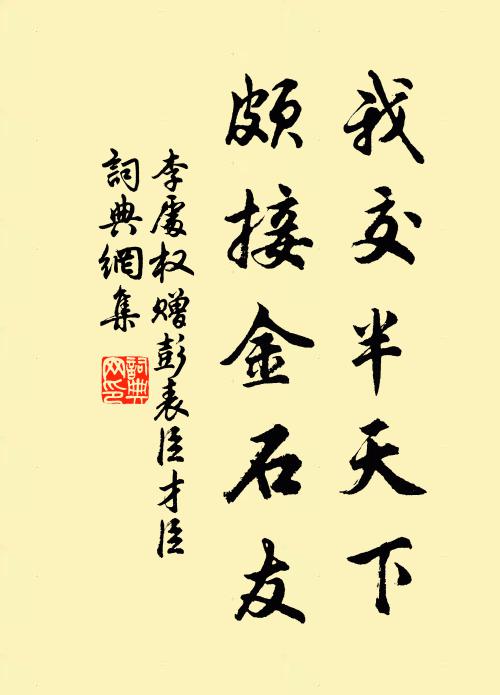 我交半天下
頗接金石友
李處权贈彭表臣才臣
詞典網集
詞典网印